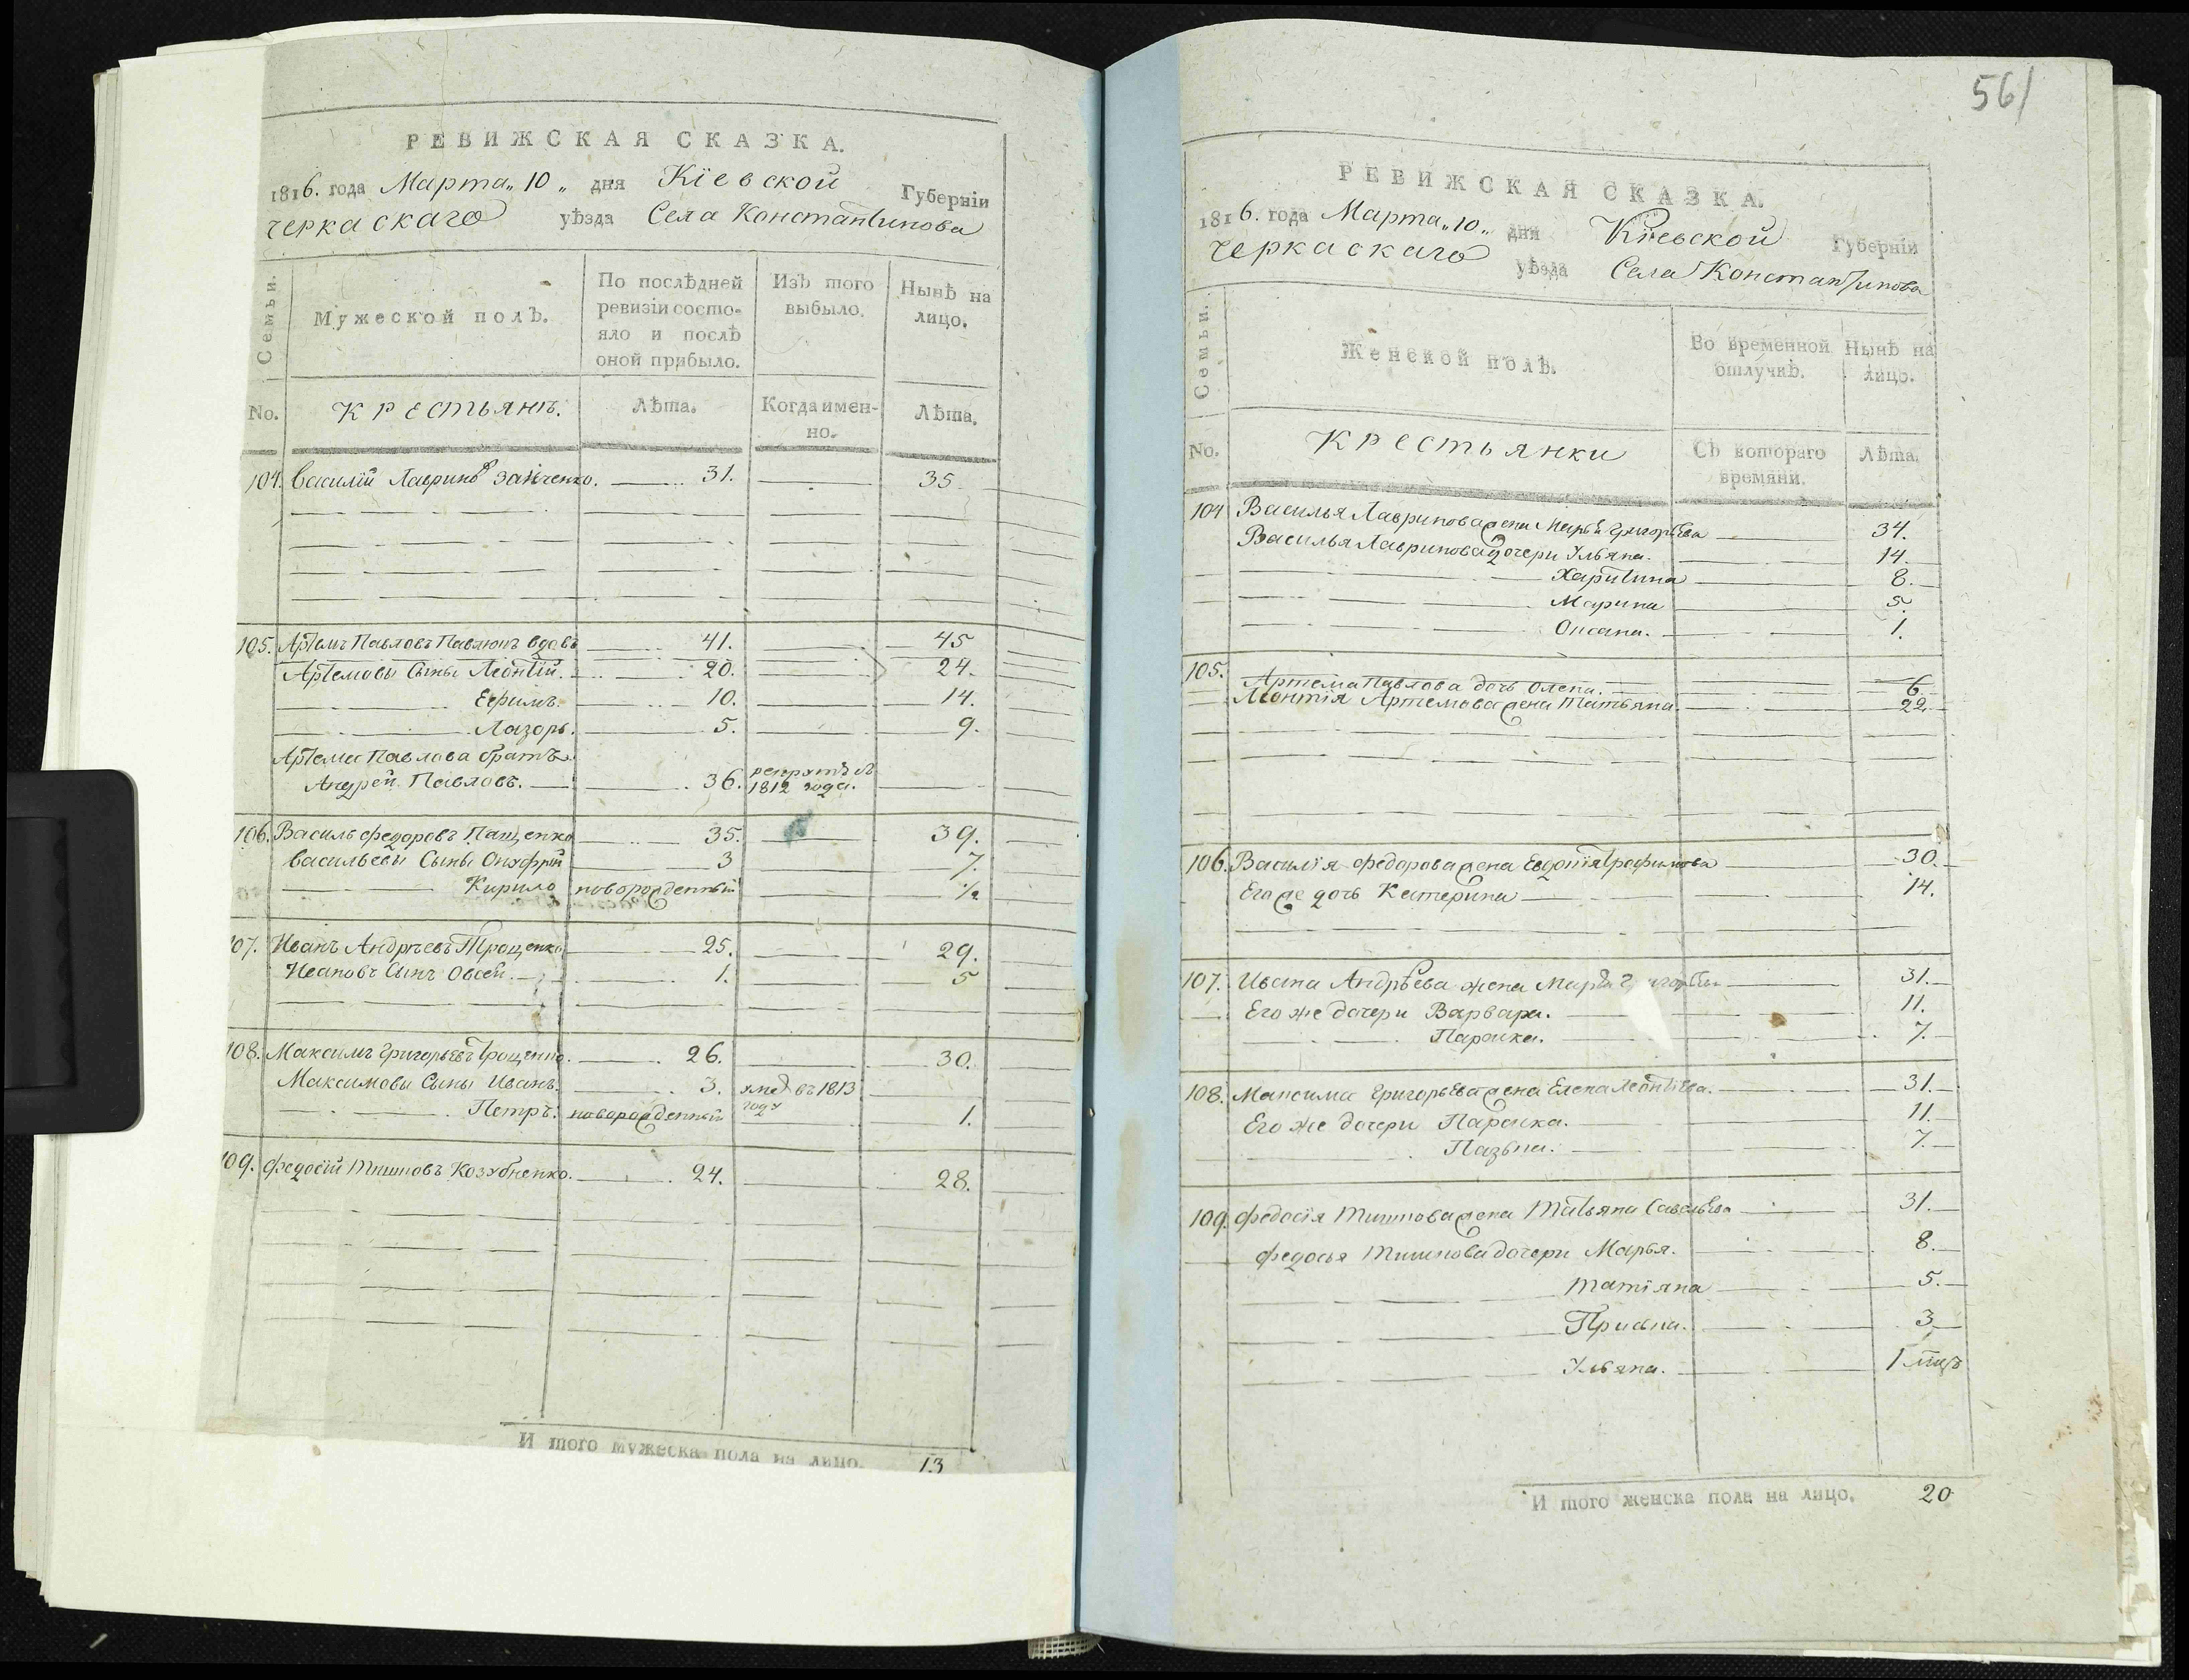 РЕВИЖСКАЯ СКАЗКА.
1816. года Марта „10„ дня Кіевской Губерніи
Черкаскаго уѣзда Села Константинова
Семьи.
Мужеской полъ.
По послѣдней ревизіи состояло и послѣ оной прибыло.
Изъ того выбыло.
Нынѣ на лицо.
No.
Крестьянъ.
Лѣта.
Когда именно.
Лѣта.
104. Василій Лавринов 31. 35
105. Артемъ Павловъ Павлюкъ вдовъ 41. 45
Артемовы Сыны Леонтій. 20. 24.
Ефимъ. 10. 14.
Лазорь. 5. 9.
Артема Павлова братъ
Андрей Павловъ. 36. рекрутъ съ 1812 года.
106. Василь Федоровъ Пащенко 35. 39.
Васильевы Сыны Онуфрій 3 7.
Кирило новорожденный ½
107. Иванъ Андрѣевъ Троценко 25. 29.
Ивановъ Сынъ Овсей. 1. 5
108. Максимъ Григорьевъ Троценко. 26. 30.
Максимовы Сыны Иванъ. 3. умер въ 1813 году
Петръ. новорожденный 1.
109. Федосій Тишковъ Козубненко. 24. 28.
И того мужеска пола на лицо. 13
561
РЕВИЖСКАЯ СКАЗКА.
1816. года Марта „10„ дня Кіевской Губерніи
Черкаскаго уѣзда Села Константинова
Семьи.
Женской полъ.
Во временной отлучкѣ.
Нынѣ на лицо.
No.
Крестьянки
Съ котораго времяни.
Лѣта.
104 Василья Лавринова жена Марья Григорьева 34.
Василья Лавринова дочери Ульяна. 14.
Харитина 8.
Марина 5.
Оксана. 1.
105. Артема Павлова дочь Олена. 6.
Леонтія Артемова жена Татьяна 22.
106. Василія Федорова жена Евдокія Трофимова 30.
Его же дочь Катерина 14.
107. Ивана Андрѣева жена Марья 31.
Его же дочери Варвара. 11.
Параска. 7.
108. Максима Григорьева жена Елена Леонтіева. 31.
Его же дочери Параска. 11.
Пазька. 7.
109. Федосія Тишкова жена Татьяна Савельева 31.
Федосья Тишкова дочери Марья. 8.
Татіяна 5.
3
Ульяна. 1
И того женска пола на лицо. 20